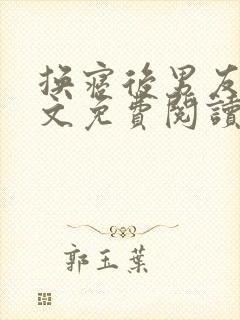 換寢後男友
文免費閱讀
郭玉葉